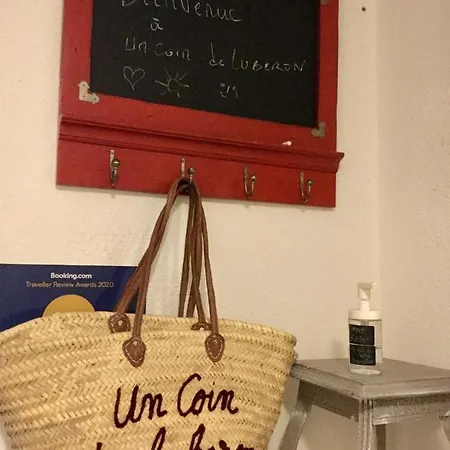 Bienvenue
à
un coin de Luberon
Booking.com
Traveller Review Awards 2020
Un Coin